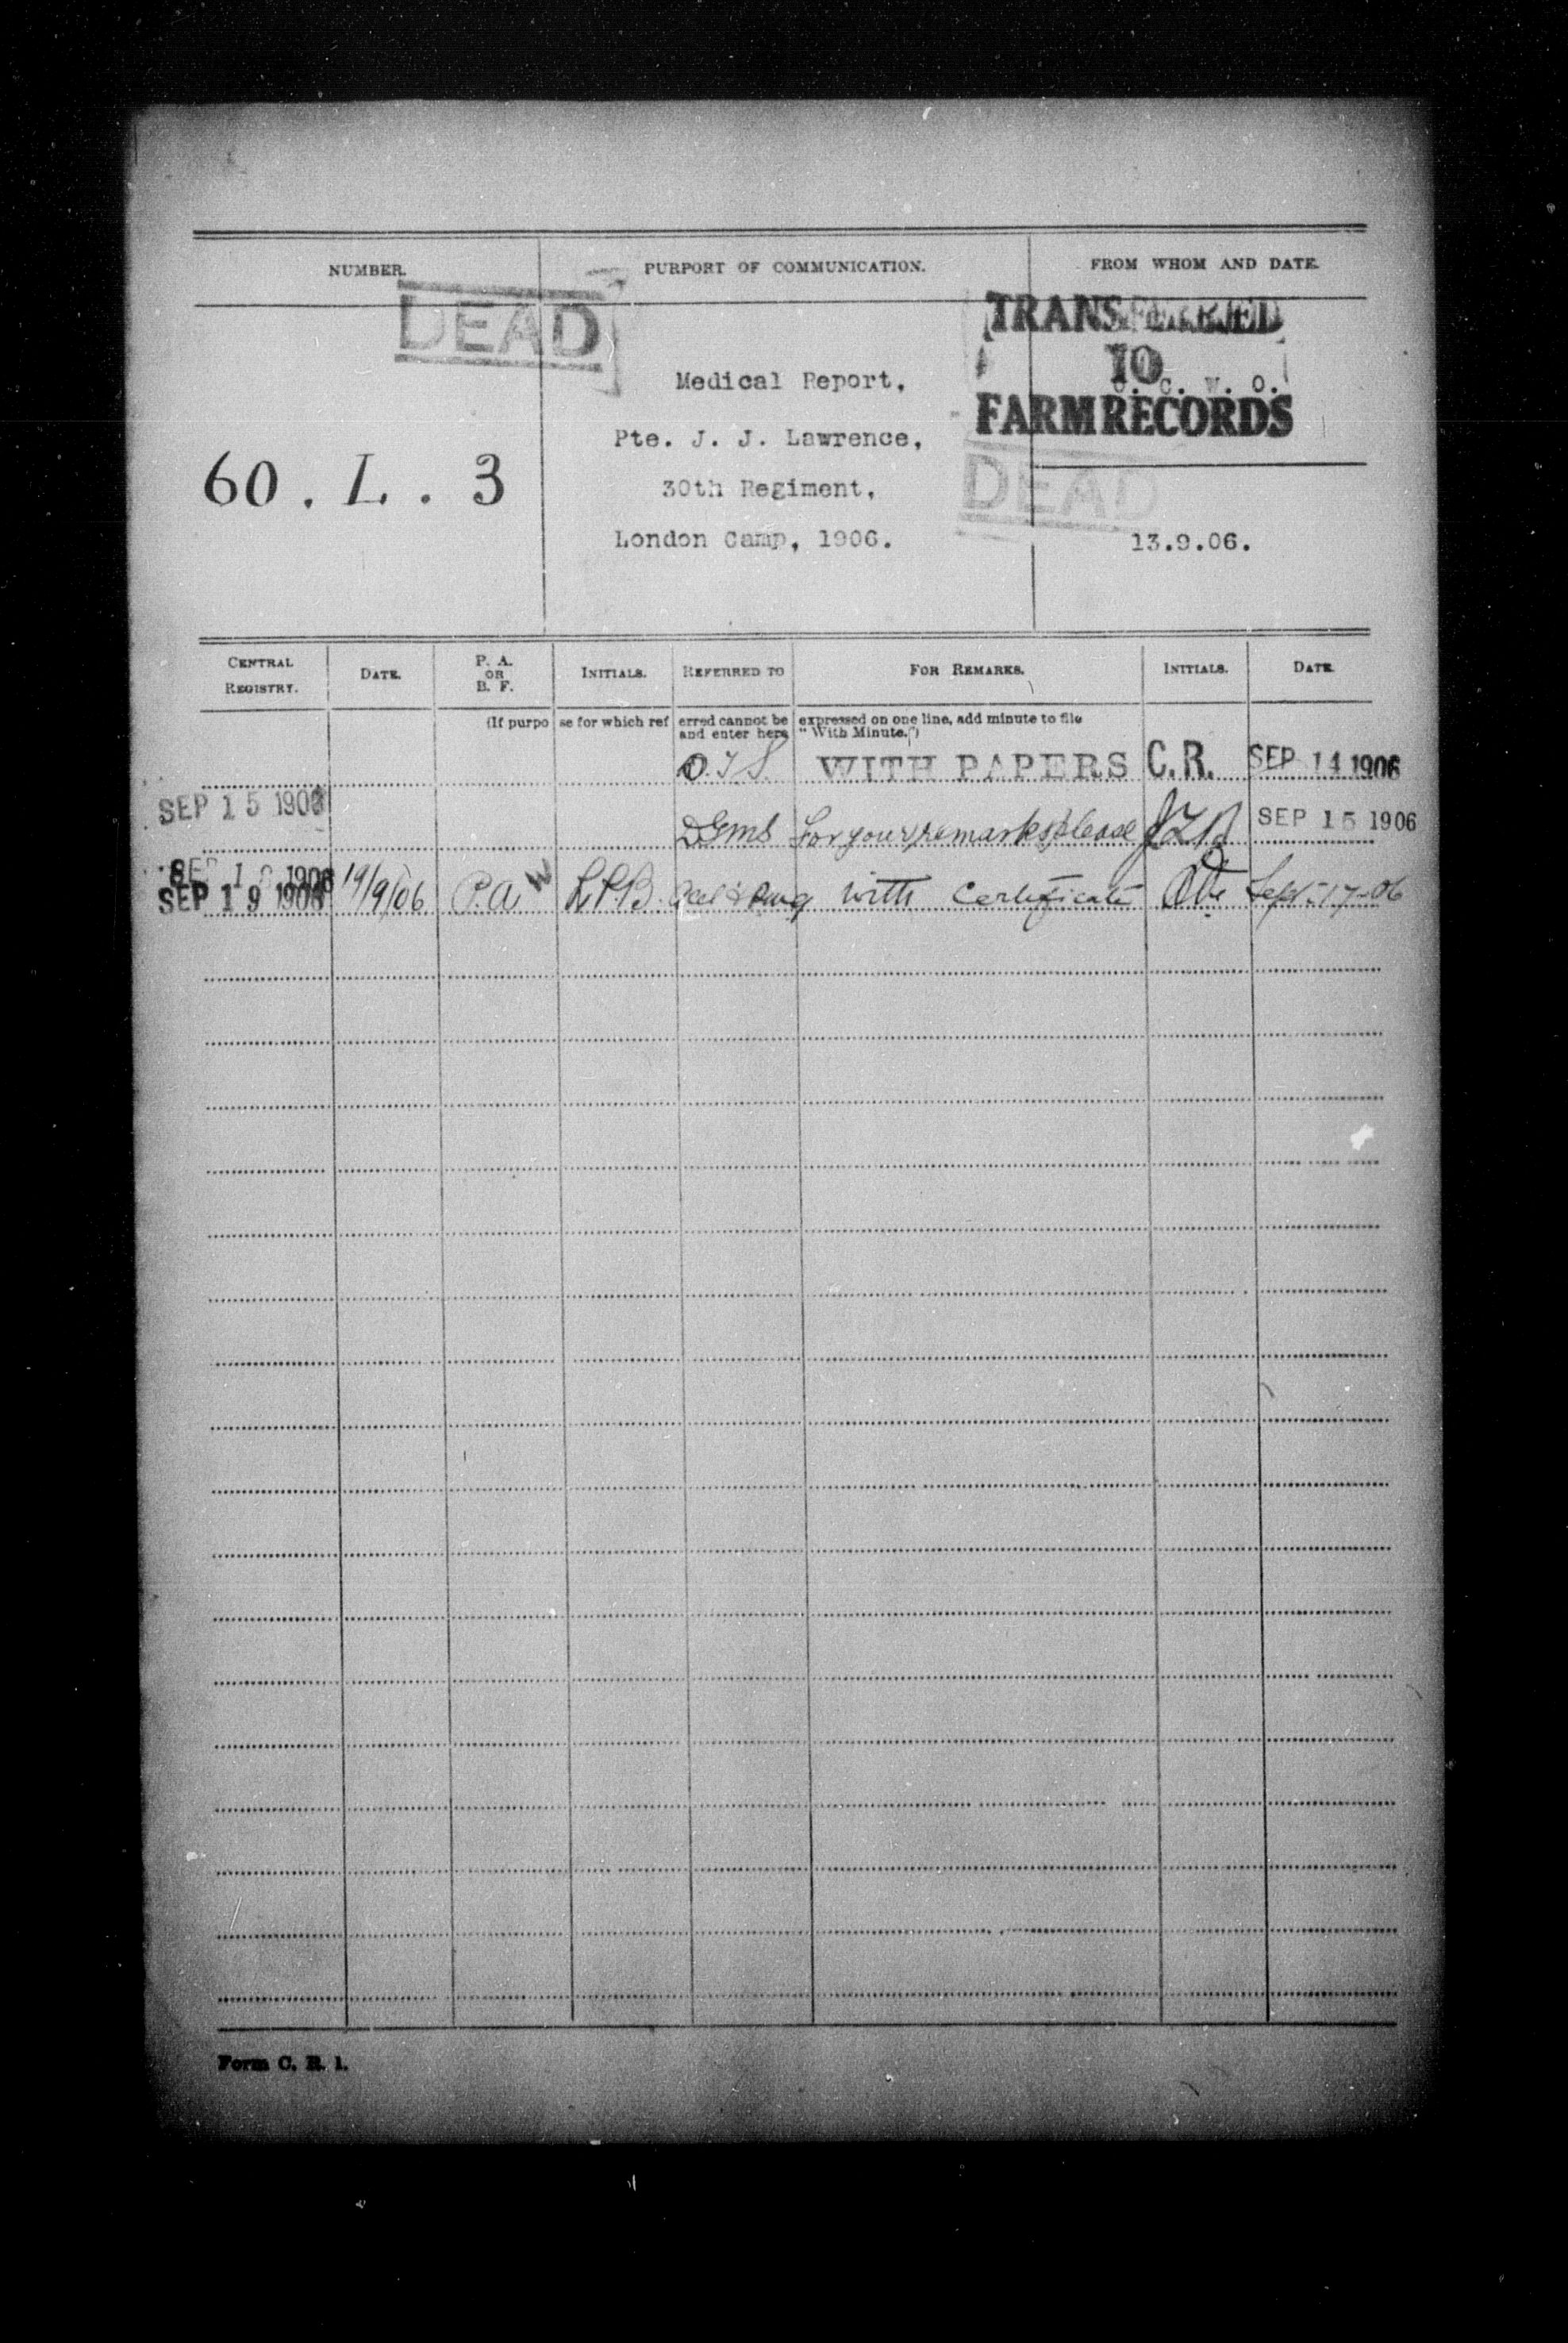 NUMBER. PURPORT OF COMMUNICATION. FROM WHOM AND DATE.
DEAD
TRANSFERRED
TO
O. C. W. O.
FARM RECORDS
Medical Report,
Pte. J. J. Lawrence,
60. L. 3 30th Regiment,
DEAD
London Camp, 1906. 13.9.06.
CENTRAL REGISTRY. DATE. P. A. OR B. F. INITIALS. REFERRED TO FOR REMARKS. INITIALS. DATE.
(If purpose for which referred cannot be expressed on one line, add minute to file
and enter here "With Minute.")
WITH PAPERS C.R. SEP 14 1906
SEP 15 1906
DGMS For your remarks please SEP 15 1906
SEP 19 1906 19/9/06 P.A with Certificate Sept-17-06
Form C. R. 1.